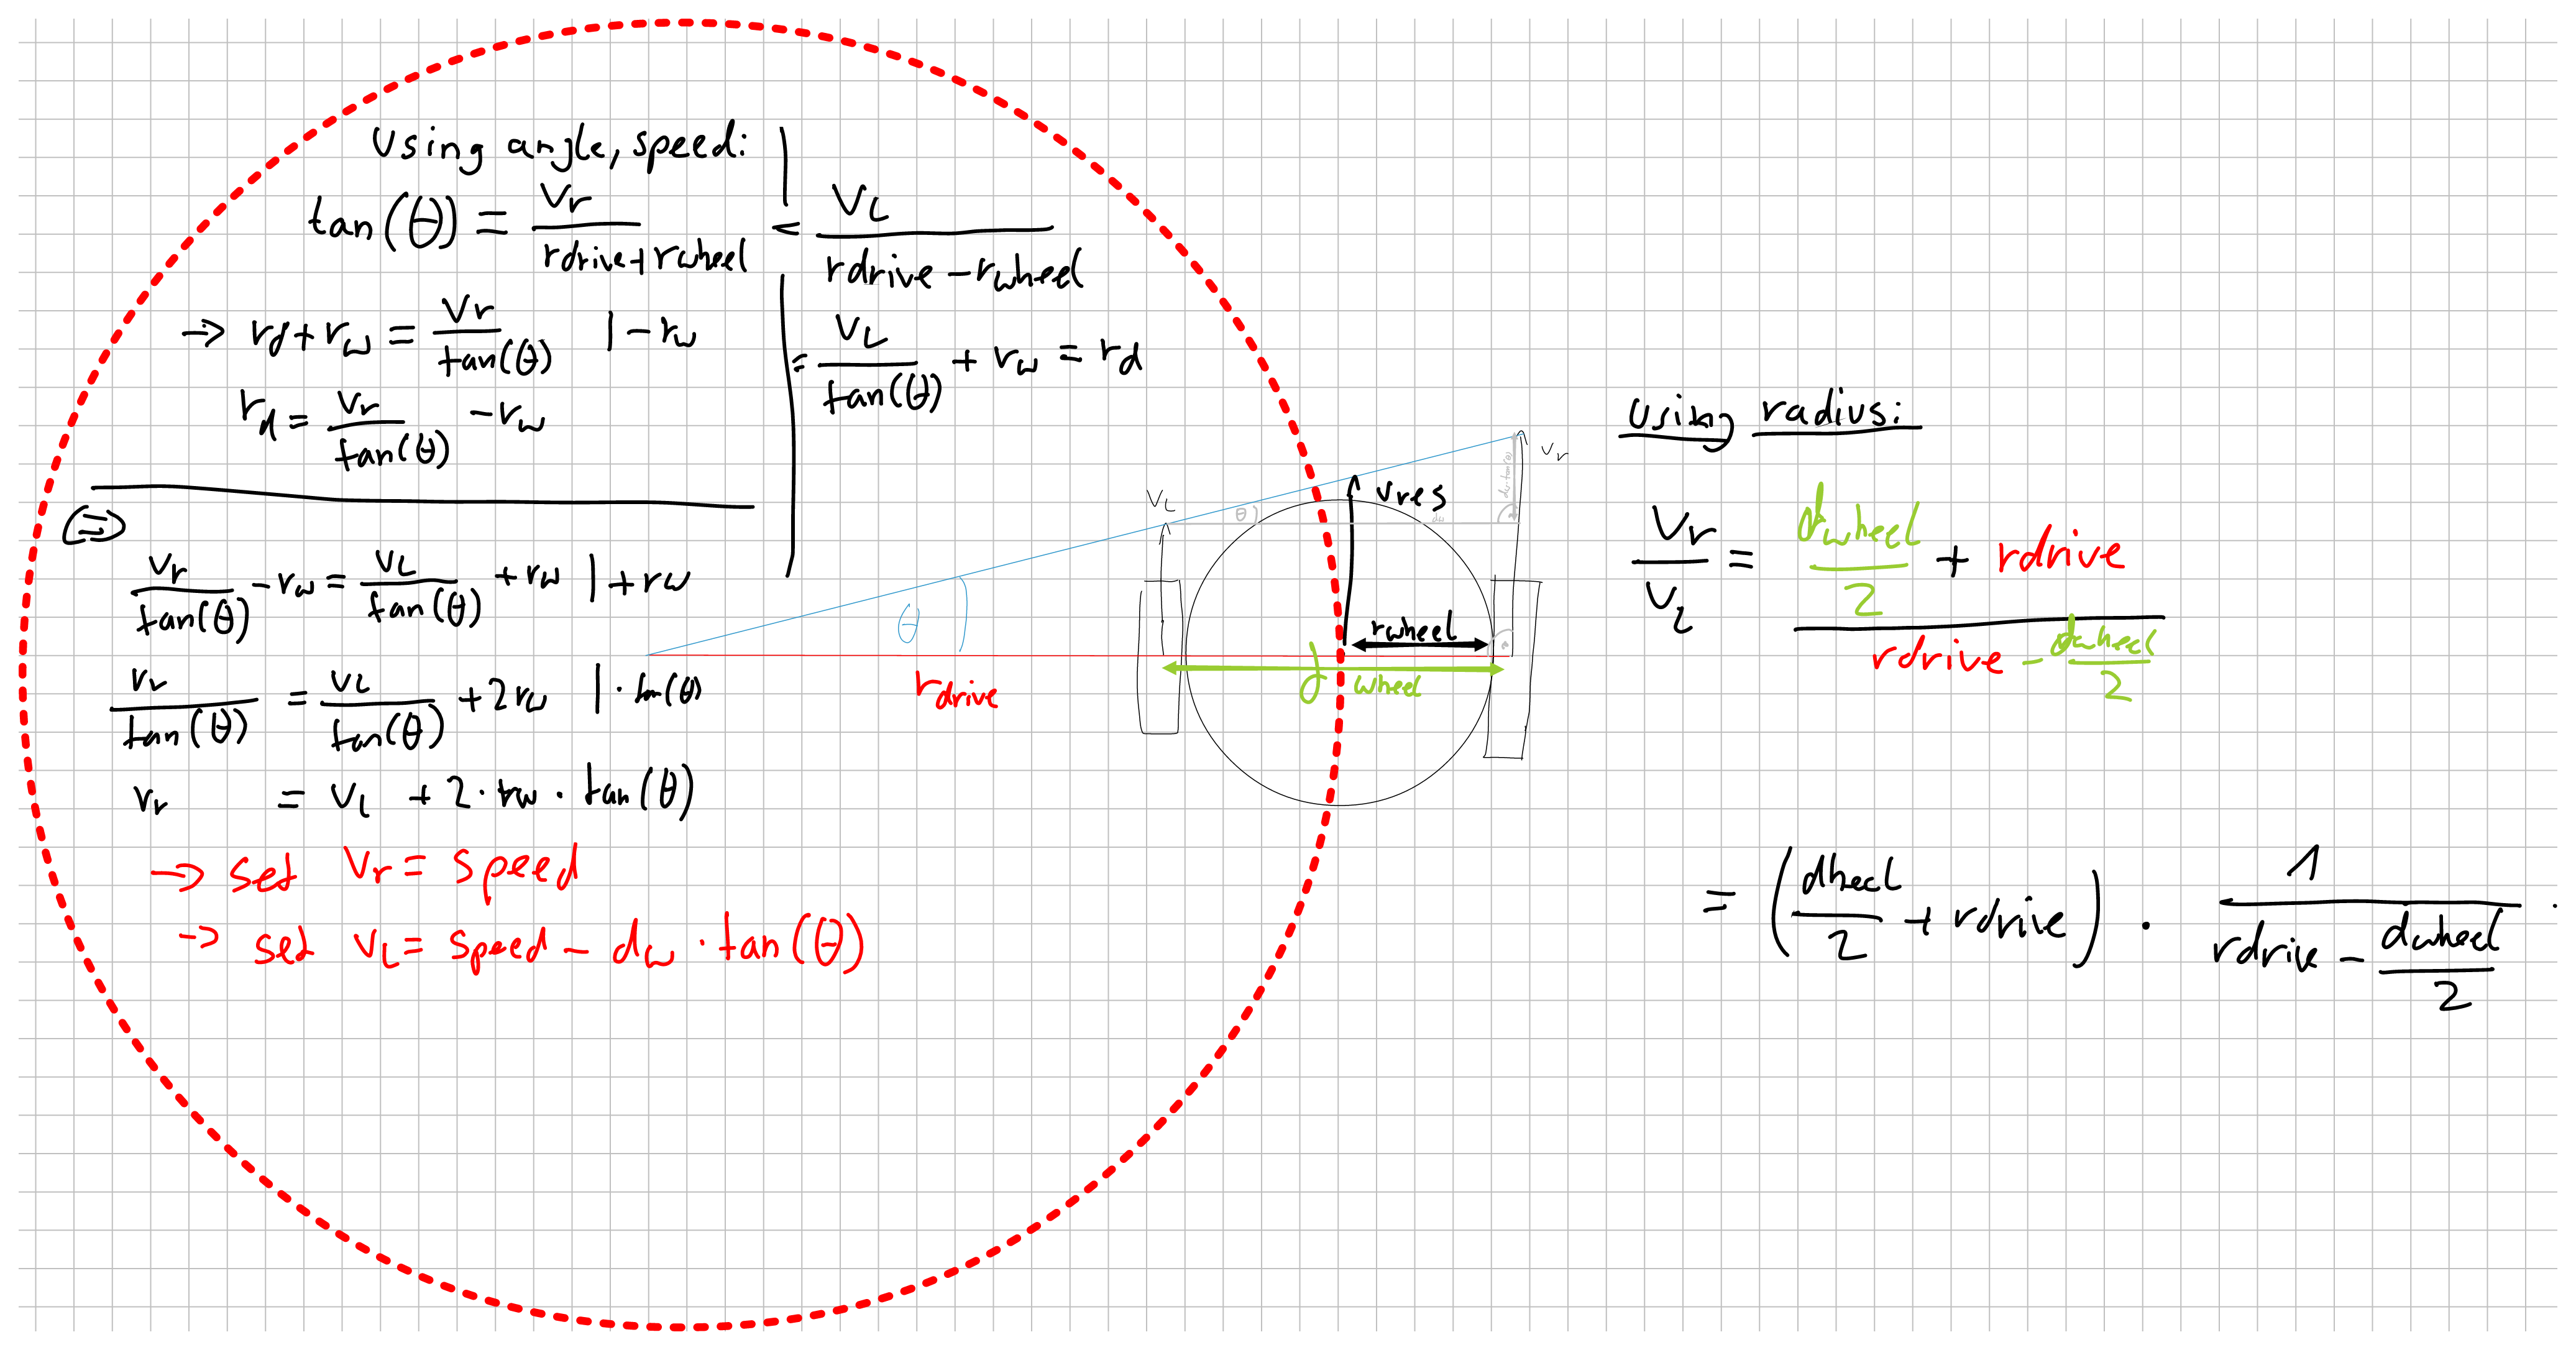 Using angle, speed:
tan(θ) = Vr / (rdrive + rwheel) = VL / (rdrive - rwheel)
→ rd + rw = Vr / tan(θ) | - rw
= VL / tan(θ) + rw = rd
rd = Vr / tan(θ) - rw
(=)
Vr / tan(θ) - rw = VL / tan(θ) + rw | + rw
Vr / tan(θ) = VL / tan(θ) + 2rw | · tan(θ)
Vr = VL + 2 · rw · tan(θ)
→ set Vr = speed
→ set VL = speed - dw · tan(θ)
VL
Vres
Vr
θ
dw
dw·tan(θ)
θ
rwheel
rdrive
d wheel
Using radius:
Vr / VL = (dwheel / 2 + rdrive) / (rdrive - dwheel / 2)
= (dheel / 2 + rdrive) · 1 / (rdrive - dwheel / 2) ·